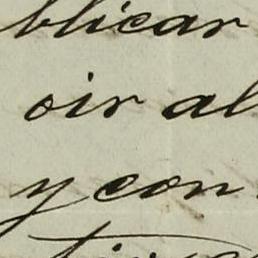 blicar
oir al
y con